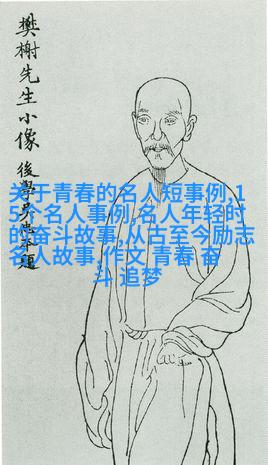 樊榭先生小像
後學
本題
关于青春的名人短事例,1
5个名人事例,名人年轻时
的奋斗故事,从古至今励志
名人故事,作文 青春 奋
斗 追梦